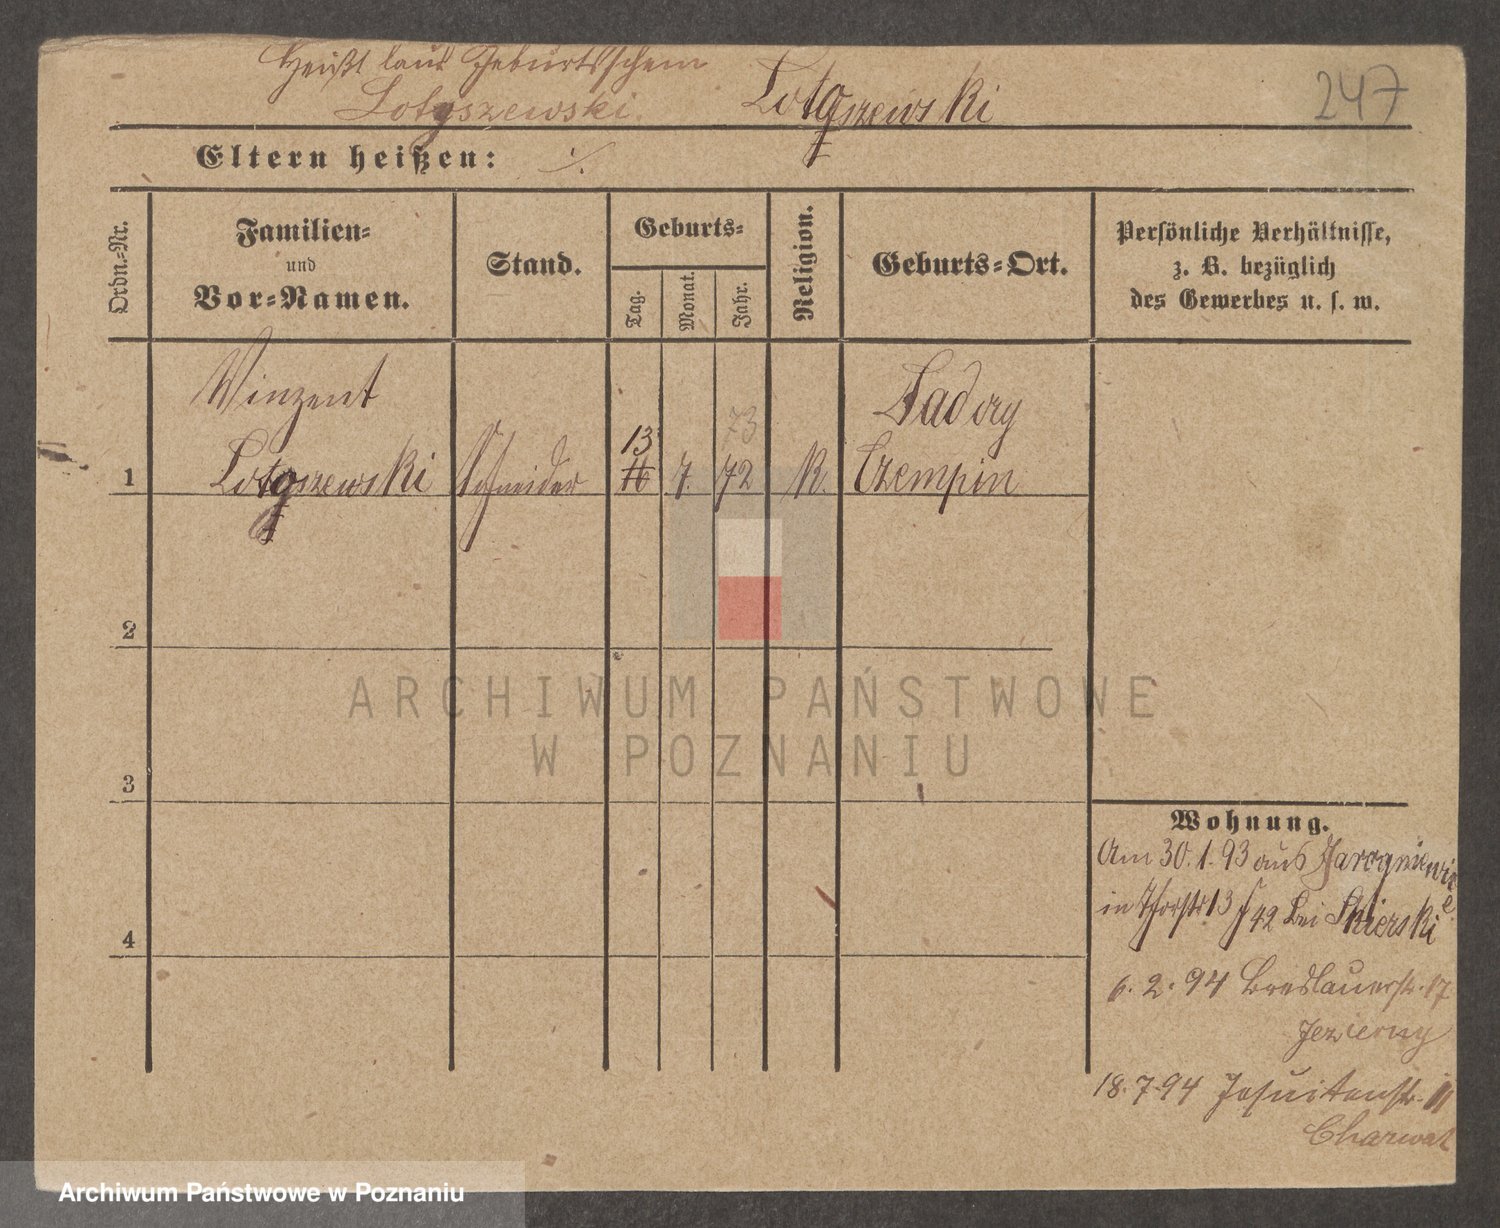 Heißt laut Geburtsschein
Lotyszewski. Lotyszewski 247
Eltern heißen: ./.
Ordn.-Nr.
Familien-
und
Vor-Namen.
Stand.
Geburts-
Tag.
Monat.
Jahr.
Religion.
Geburts-Ort.
Persönliche Verhältnisse,
z. B. bezüglich
des Gewerbes u. s. w.
Winzent
Lotyszewski
Schneider
13
7.
73
72
K.
Sadory
Czempin
1
2
3
4
Wohnung.
Am 30.1.93 aus Jarogniewice
in Thorstr. 13 f 42 bei Skierski
6.2.94 Breslauerstr. 17
Jezierny
18.7.94 Jesuitenstr. 11
Charwat
ARCHIWUM PAŃSTWOWE
W POZNANIU
Archiwum Państwowe w Poznaniu